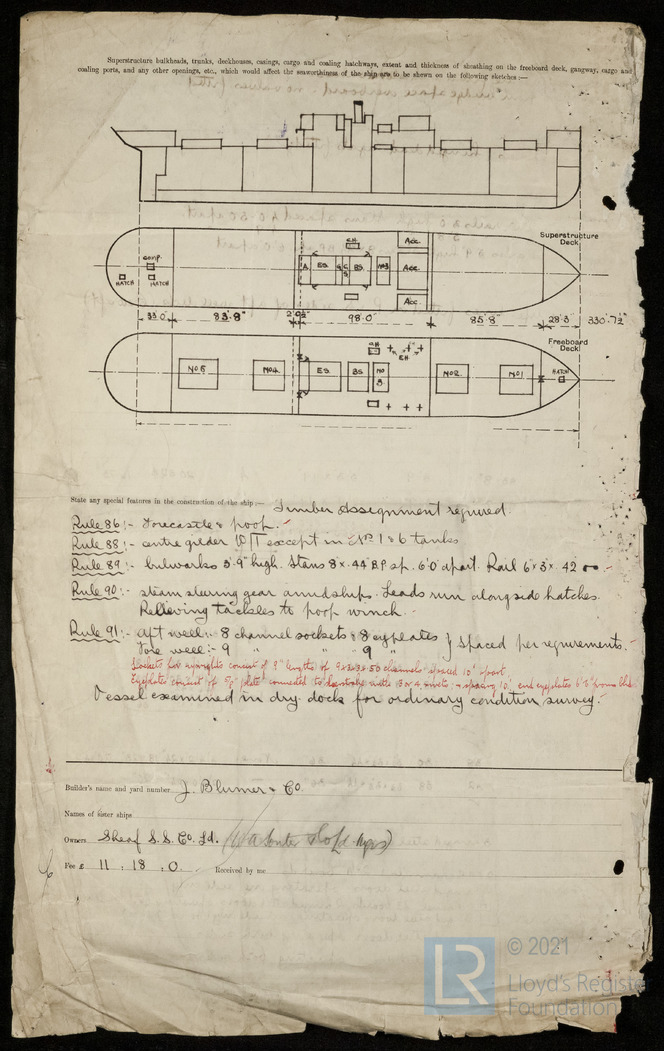 Superstructure bulkheads, trunks, deckhouses, casings, cargo and coaling hatchways, extent and thickness of sheathing on the freeboard deck, gangway, cargo and
coaling ports, and any other openings, etc., which would affect the seaworthiness of the ship are to be shewn on the following sketches :—
Superstructure
Deck
COMP.
HATCH
HATCH
CH
Acc.
A
ES
BS
No3
Acc.
Acc.
33.0'
83'.8"
2'.0½"
98.0'
85'.8"
28'.3
330'.7½"
Freeboard
Deck
CH
EH
No.5
No.4
ES
BS
No
3
No.2
No.1
HATCH
State any special features in the construction of the ship :— Timber Assignment required.
Rule 86:- Forecastle & poop.
Rule 88:- centre girder except in Nos. 1 & 6 tanks
Rule 89:- bulwarks 3'.9" high. Stans 8 × .44 B.P. sp. 6'.0 apart. Rail 6 × 3 × .42
Rule 90:- steam steering gear amidships. Leads run alongside hatches.
Relieving tackles to poop winch.
Rule 91:- Aft well:- 8 channel sockets & 8 eyeplates } spaced per requirements.
Fore well:- 9 " " 9 "
Sockets for uprights consist of 9" lengths of channels spaced 10' apart.
Eyeplates consist of plate connected to sheerstrake with rivets, spacing 10' and eyeplates 6'.3" from the
Vessel examined in dry dock for ordinary condition survey.
Builder's name and yard number J. Blumer & Co.
Names of sister ships
Owners Sheaf S.S. Co. Ld. (W. A. Souter & Co Ld. Mgrs)
Fee £ 11 : 18 : 0. Received by me
LR
© 2021
Lloyd's Register
Foundation